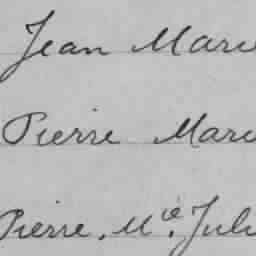 Jean Marie
Pierre Marie
Pierre. Mie. Juli